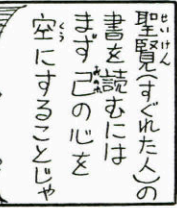 聖賢(すぐれた人)の
書を読むには
まず己の心を
空にすることじゃ